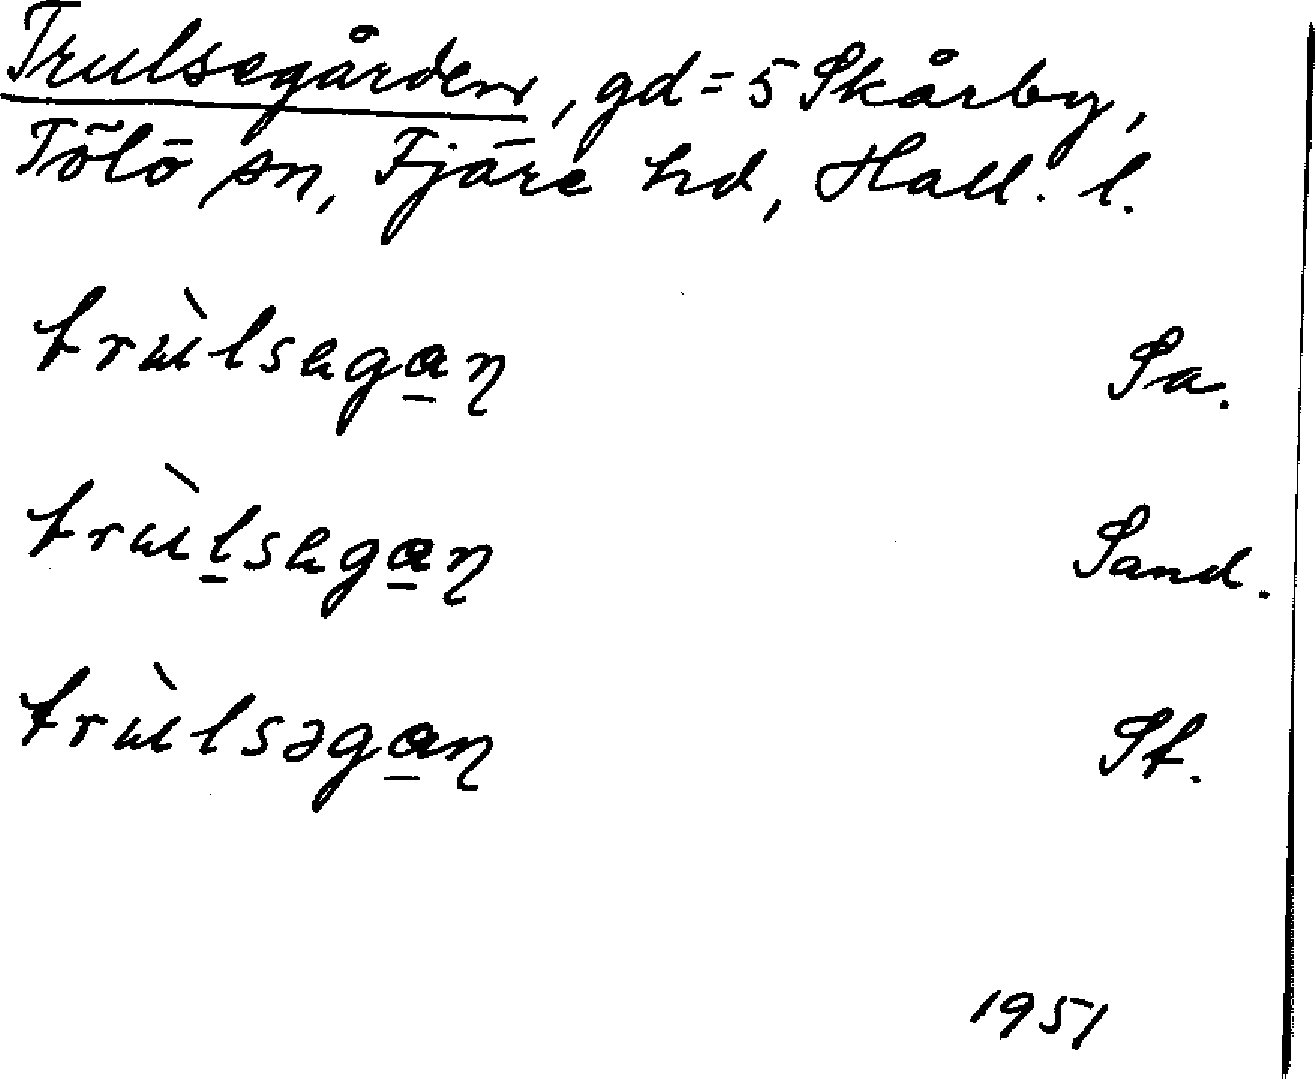 Trulsegården, gd = 5 Skårby,
Tölö sn, Fjäre hd, Hall. l.
trɯ̀lsaga̲ɳ Sa.
trɯ̀l̲saga̲ɳ Sand.
trɯ̀lsəga̲ɳ St.
1951